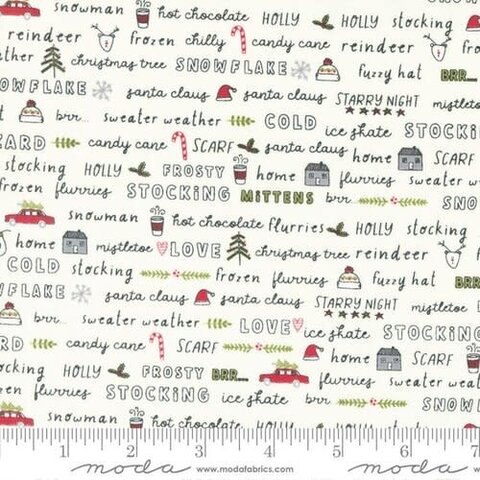 hot chocolate HOLLY HOLLY stocking
reindeer frozen chilly candy cane reindeer
christmas tree SNOWFLAKE fuzzy hat BRR...
SNOWFLAKE santa claus santa claus STARRY NIGHT mistletoe
brr... sweater weather COLD ice skate STOCKING
candy cane SCARF santa claus home SCARF
stocking HOLLY FROSTY home flurries sweater
frozen flurries STOCKING MITTENS brr...
snowman hot chocolate flurries HOLLY stocking
home mistletoe LOVE christmas tree reindeer
COLD stocking frozen flurries fuzzy hat BRR
santa claus santa claus STARRY NIGHT mistletoe
brr... sweater weather LOVE ice skate STOCKING
candy cane SCARF home SCARF
stocking HOLLY FROSTY BRR... flurries sweater weather
frozen flurries STOCKING ice skate brr...
snowman hot chocolate flurries HOLLY stocking
1 2 3 4 5 6 7
moda www.modafabrics.com moda